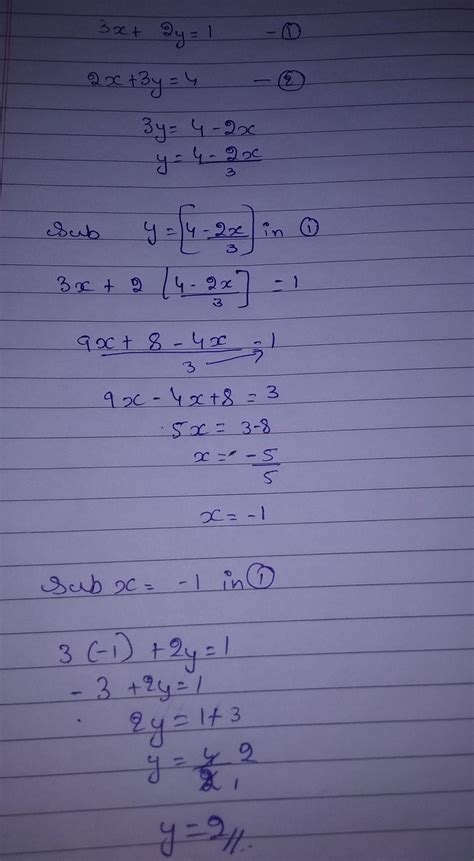 3x + 2y = 1 - ①
2x + 3y = 4 - ②
3y = 4 - 2x
y = 4 - 2x
3
Sub y = [4 - 2x / 3] in ①
3x + 2 [4 - 2x / 3] = 1
9x + 8 - 4x = 1
3
9x - 4x + 8 = 3
5x = 3-8
x = -5
5
x = -1
Sub x = -1 in ①
3 (-1) + 2y = 1
- 3 + 2y = 1
2y = 1 + 3
y = 4 2
2 1
y = 2 //.